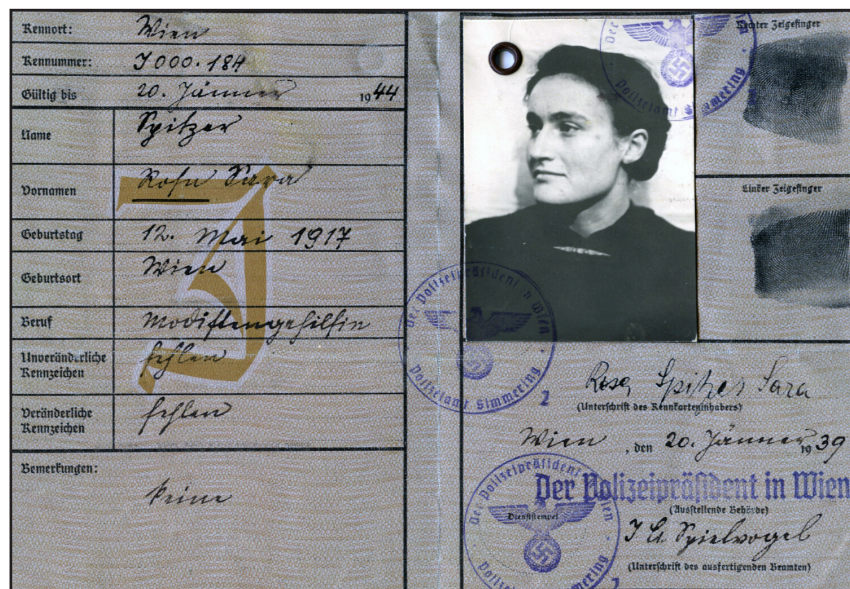 Kennort: Wien
Kennummer: J 000.184
Gültig bis 20. Jänner 1944
Name Spitzer
Vornamen Rosa Sara
Geburtstag 12. Mai 1917
Geburtsort Wien
Beruf Modistengehilfin
Unveränderliche
Kennzeichen fehlen
Veränderliche
Kennzeichen fehlen
Bemerkungen:
keine
J
Rechter Zeigefinger
Linker Zeigefinger
Der
Polizeiamt Simmering
Der Polizeipräsident in Wien
Polizeiamt Simmering
2
Rosa Spitzer Sara
(Unterschrift des Kennkarteninhabers)
Wien, den 20. Jänner 1939
Der Polizeipräsident in Wien
(Ausstellende Behörde)
Dienststempel
Der Polizeipräsident in Wien
Polizeiamt Simmering
2
Spielvogel
(Unterschrift des ausfertigenden Beamten)